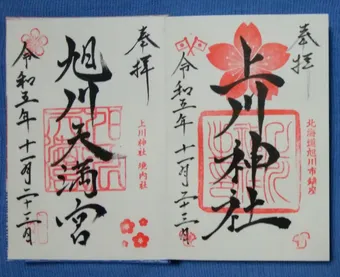 奉拝
上川神社 境内社
旭川天満宮
令和五年十一月二十三日
奉拝
北海道旭川市鎮座
上川神社
令和五年十一月二十三日